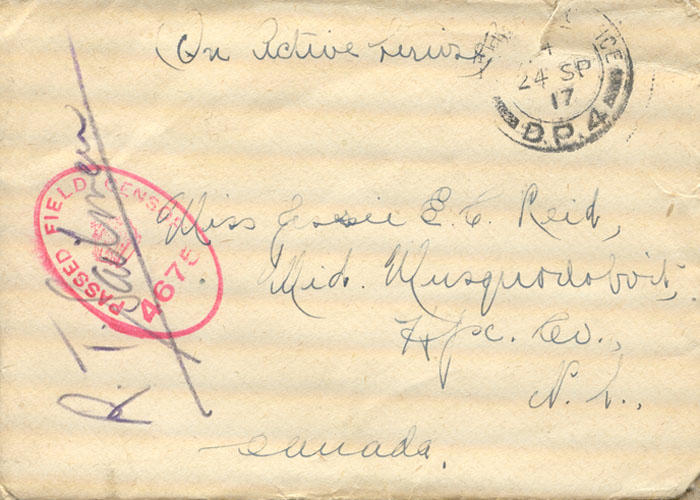 (On Active Service)
ICE
24 SP
17
D.P.4
PASSED FIELD CENSOR
4675
R. T.
Miss Jessie E. C. Reid,
Mid. Musquodoboit,
Hfx. Co.,
N. S.,
Canada.